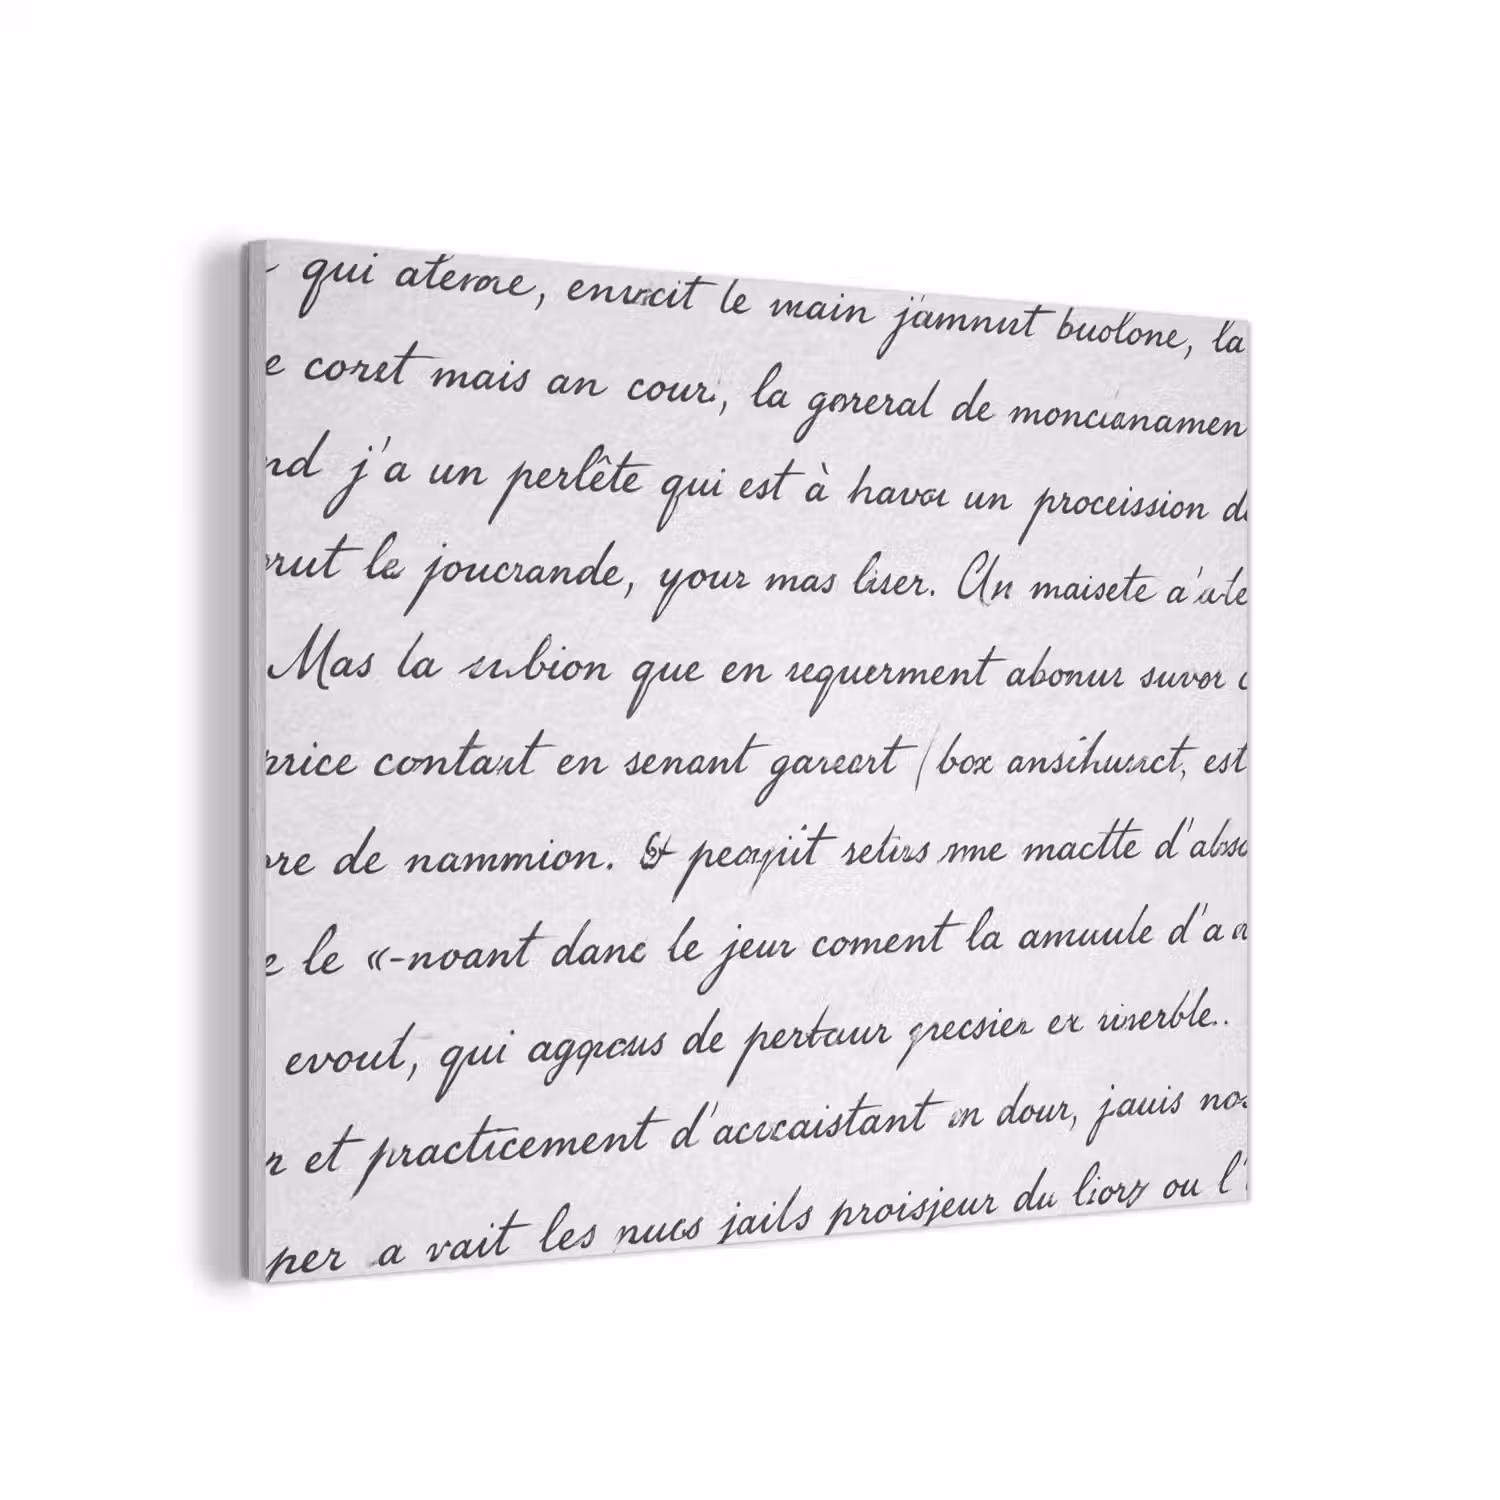 qui ateroe, envcit le main j'amnut buolone, la
e coret mais an cour, la goreral de moncianamen
nd j'a un perlête qui est à havoi un proceission de
rut le joucrande, your mas liser. Un maisete a'ate
Mas la subion que en requerment abonur suvor
rice contart en senant gareart / box ansihusct, est
re de nammion. & retirs me mactte d'abso
e le «-noant danc le jeur coment la amuule d'a
evout, qui de pertaur grecsier er riserble..
r et practicement d'accaistant en dour, jauis nos
per a vait les nucs jails proisjeur du liory ou l'